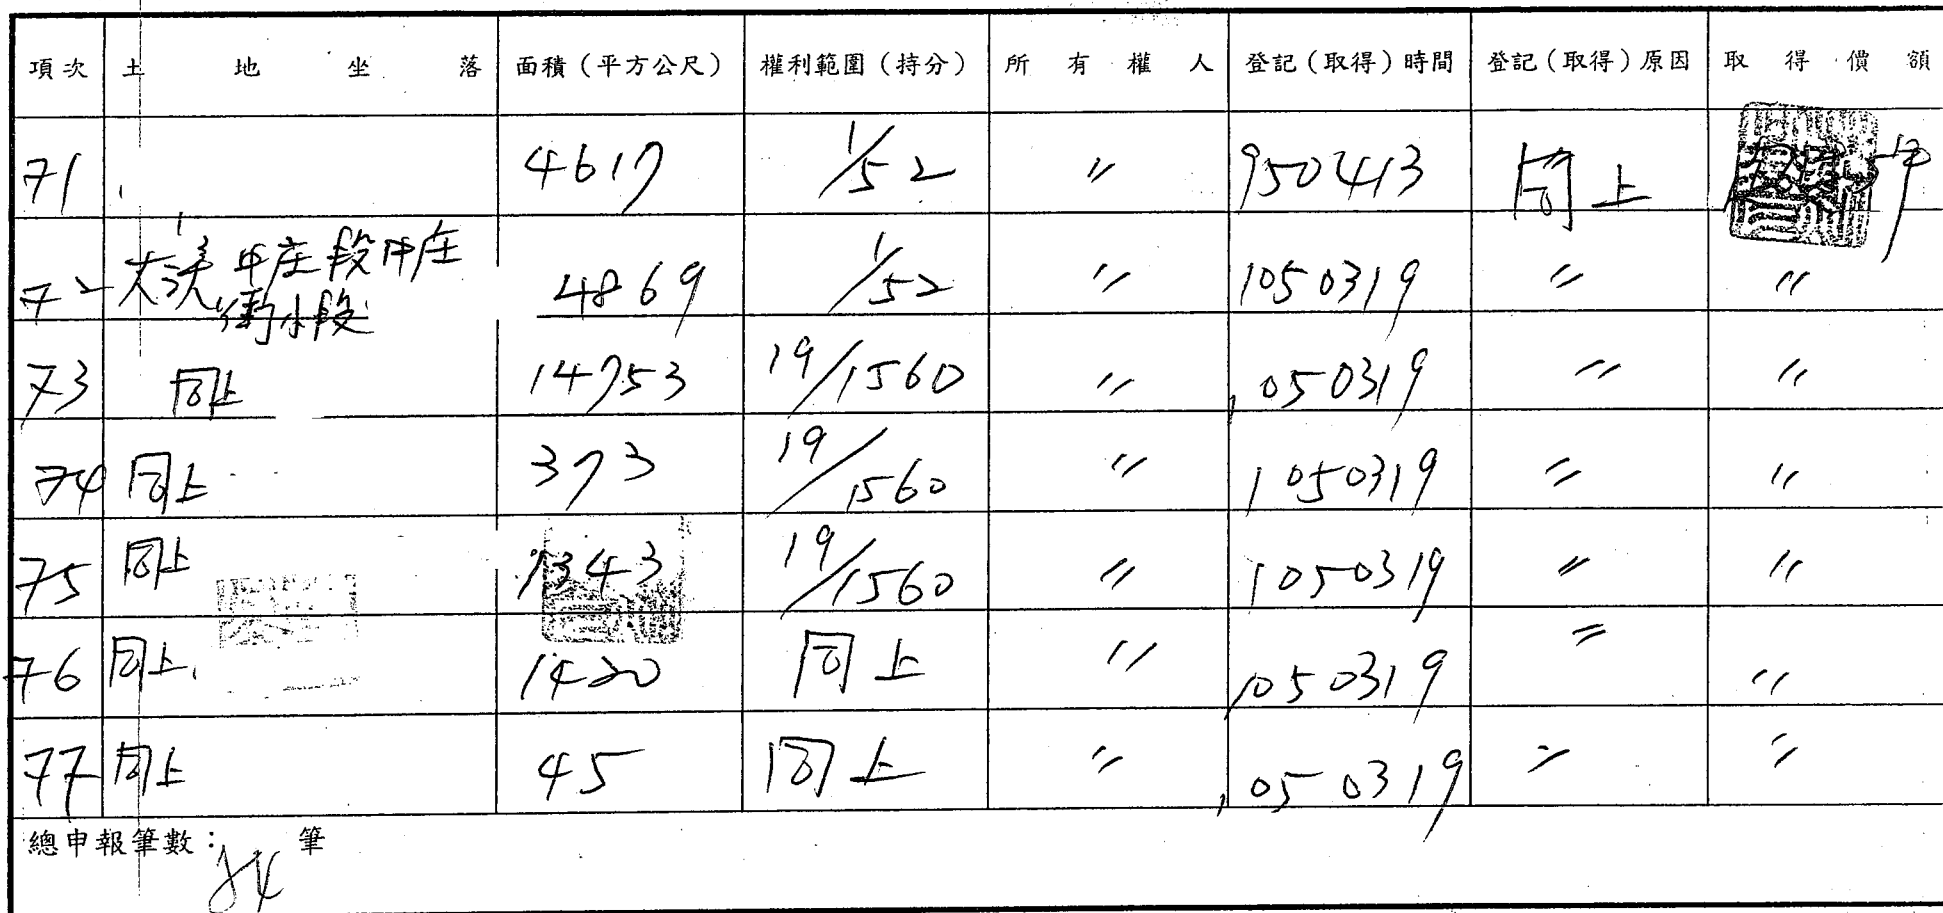 項次 土地坐落 面積（平方公尺） 權利範圍（持分） 所有權人 登記（取得）時間 登記（取得）原因 取得價額
71 4617 1/52 〃 950413 同上
72 大溪 中庄段中庄 4869 1/52 〃 1050319 〃 〃
小段
73 同上 14753 19/1560 〃 1050319 〃 〃
74 同上 373 19/1560 〃 1050319 〃 〃
75 同上 1343 19/1560 〃 1050319 〃 〃
76 同上 1420 同上 〃 1050319 〃 〃
77 同上 45 同上 〃 1050319 〃 〃
總申報筆數： 筆